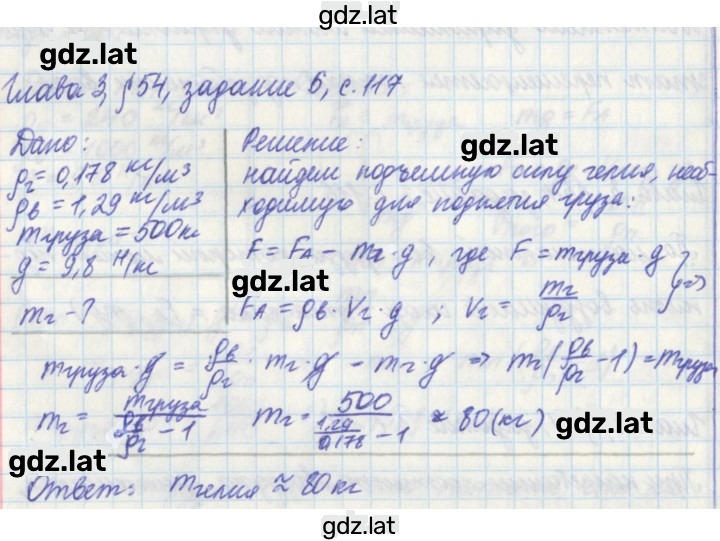 gdz.lat
gdz.lat
Глава 3, § 54, задание 6, с. 117
Дано:
ρг = 0,178 кг/м³
ρв = 1,29 кг/м³
mгруза = 500 кг
g = 9,8 Н/кг
mг - ?
Решение:
gdz.lat
найдем подъемную силу гелия, необ-
ходимую для поднятия груза:
F = FA - mг · g, где F = mгруза · g
gdz.lat
FA = ρв · Vг · g ; Vг = mг/ρг } =>
mгруза · g = ρв/ρг · mг · g - mг · g => mг(ρв/ρг - 1) = mгруза
mг = mгруза / (ρв/ρг - 1) mг = 500 / (1,29/0,178 - 1) ≈ 80 (кг)
gdz.lat
gdz.lat
Ответ: mгелия ≈ 80 кг
gdz.lat